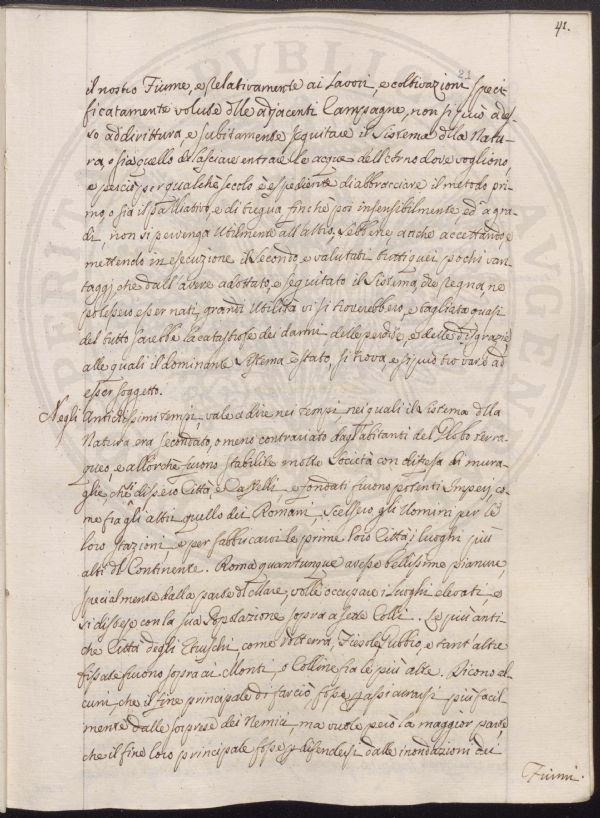 41.
21
il nostro Fiume, e relativamente ai Lavori, e coltivazioni speci
ficatamente volute dlle adjacenti Campagne, non si può ades
so addirittura e subitamente seguitare il Sistema dlla Natu-
ra, o sia quello di lasciare entrare le acque dell'Arno dove vogliono,
e perciò per qualche secolo è espediente di abbracciare il metodo pri
mo, o sia il palliativo, e di tregua finchè poi insensibilmente ed a gra-
di, non si pervenga utilmente all'altro, sebbene, anche accettando, e
mettendo in esecuzione il secondo e valutati tutti quei pochi van
taggi, che dall'avere adottato, e seguitato il Sistema, che regna, ne
potessero esser nati, grandi Utilità vi si troverebbero, e tagliata quasi
del tutto sarebbe la catastrofe dei danni, delle perdite, e delle disgrazie,
alle quali il dominante Sistema è stato, si trova, e si può trovare ad
esser soggetto.
Negli Antichissimi tempi, vale a dire nei tempi nei quali il Sistema dlla
Natura era secondato, o meno contrariato dagl'abitanti del Globo terra-
queo, e allorchè furono stabilite molte Società con difesa di mura-
glie, che si dissero Città e Castelli, e fondati furono potenti Imperj co-
me fra gl'altri quello dei Romani, scelsero gli Uomini per le
loro stazioni e per fabbricarvi le prime loro Città i luoghi più
alti dl Continente. Roma quantunque avesse bellissime pianure,
specialmente dalla parte dl Mare, volle occupare i luoghi elevati, e
si distese con la sua Popolazione sopra a sette Colli. Le più anti-
che Città degli Etruschi, come Volterra, Fiesole, Gubbio, e tant'altre
fissate furono sopra ai Monti, o Colline fra le più alte. Dicono al-
cuni, che il fine principale di far ciò fosse p assicurarsi più facil
mente dalle sorprese dei Nemici, ma vuole però la maggior parte
che il fine loro principale fosse p difendersi dalle inondazioni dei
Fiumi.